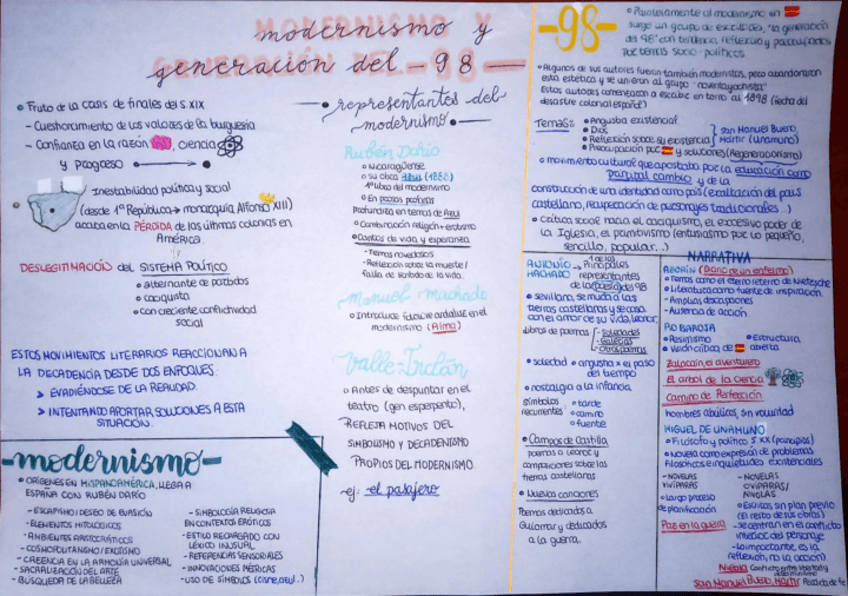 modernismo y
generación del -98-
• Fruto de la crisis de finales del s XIX
- Cuestionamiento de los valores de la burguesía
- Confianza en la razón, ciencia
y progreso
Inestabilidad política y social
(desde 1ª República → monarquía Alfonso XIII)
acaba en la PÉRDIDA de las últimas colonias en
América.
DESLEGITIMACIÓN del SISTEMA POLÍTICO
• alternante de partidos
• caciquista
• con creciente conflictividad
social
ESTOS MOVIMIENTOS LITERARIOS REACCIONAN A
LA DECADENCIA DESDE DOS ENFOQUES:
> EVADIÉNDOSE DE LA REALIDAD.
> INTENTANDO APORTAR SOLUCIONES A ESTA
SITUACIÓN.
-modernismo-
• ORÍGENES EN HISPANOAMÉRICA, LLEGA A
ESPAÑA CON RUBÉN DARÍO
- ESCAPISMO/DESEO DE EVASIÓN
- ELEMENTOS MITOLÓGICOS
- AMBIENTES ARISTOCRÁTICOS
- COSMOPOLITANISMO/EXOTISMO
- CREENCIA EN LA ARMONÍA UNIVERSAL
- SACRALIZACIÓN DEL ARTE
- BÚSQUEDA DE LA BELLEZA
- SIMBOLOGÍA RELIGIOSA
EN CONTEXTOS ERÓTICOS
- ESTILO RECARGADO CON
LÉXICO INUSUAL
- REFERENCIAS SENSORIALES
- INNOVACIONES MÉTRICAS
- USO DE SÍMBOLOS (cisne, azul..)
• representantes del
modernismo •
Rubén Darío
• Nicaragüense
• su obra Azul (1888)
1º libro del modernismo
• En prosas profanas
Profundiza en temas de Azul
• Combinación religión + erotismo
• Cantos de vida y esperanza
- Temas novedosos
- Reflexión sobre la muerte/
falta de sentido de la vida.
Manuel Machado
• Introduce folclore andaluz en el
modernismo (Alma)
Valle-Inclán
• Antes de despuntar en el
teatro (gen esperpento),
REFLEJA MOTIVOS DEL
SIMBOLISMO Y DECADENTISMO
PROPIOS DEL MODERNISMO
-ej: el pasajero
-98-
• Paralelamente al modernismo en
surge un grupo de escritores, "la generación
del 98" con tendencia reflexiva y preocupados
por temas socio-políticos
• Algunos de sus autores fueron también modernistas, pero abandonaron
esta estética y se unieron al grupo "noventayochista"
Estos autores comenzaron a escribir en torno al 1898 (fecha del
desastre colonial español)
Temas:
• Angustia existencial
• Dios
• Reflexión sobre su existencia
• Preocupación por y soluciones (Regeneracionismo)
San Manuel Bueno,
Mártir (Unamuno)
• movimiento cultural que apostaba por la educación como
cambio y de la
construcción de una identidad como país (exaltación del país
castellano, recuperación de personajes tradicionales...)
• Crítica social hacia el caciquismo, el excesivo poder de
la Iglesia, el (entusiasmo por lo pequeño,
sencillo, popular...)
ANTONIO MACHADO → 1 de los Principales
representantes
de la (poesía) del 98
• sevillano, se muda a las
tierras castellanas y se casa
con el amor de su vida, Leonor.
Libros de poemas
- Soledades
- Galerías
- Otros poemas
• soledad • angustia x el paso
del tiempo
• nostalgia a la infancia
símbolos
recurrentes:
• tarde
• camino
• fuente
• Campos de Castilla
poemas a Leonor y
composiciones sobre las
tierras castellanas
• Nuevas canciones
Poemas dedicados a
Guiomar y dedicados
a la guerra.
NARRATIVA
AZORÍN (Diario de un enfermo)
• Temas como el eterno retorno de Nietzsche
• Literatura como fuente de inspiración.
- Amplias descripciones
- Ausencia de acción.
PÍO BAROJA
• Pesimismo
• Visión crítica de
• Estructura
abierta
Zalacaín el aventurero
El árbol de la Ciencia
Camino de Perfección
hombres abúlicos, sin voluntad
MIGUEL DE UNAMUNO
• Filósofo y político S XX (principios)
• Novela como expresión de problemas
filosóficos e inquietudes existenciales
- NOVELAS
VIVÍPARAS
• Largo proceso
de planificación
Paz en la guerra
- NOVELAS
OVÍPARAS/
NIVOLAS
• Escritas sin plan previo
(El resto de sus obras)
- se centran en el conflicto
interior del personaje
- Lo importante es la
reflexión, no la acción)
Niebla Conflicto entre libertad y
determinismo
San Manuel Bueno, Mártir Pérdida de fe